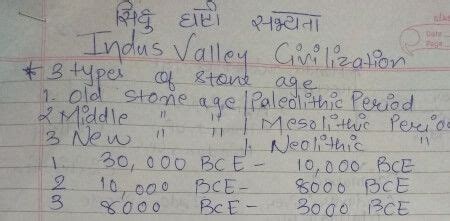 सिंधु घाटी सभ्यता
Indus Valley Civilization
* 3 types of stone age
1. Old stone age / Paleolithic Period
2 Middle " " / Mesolithic Perio
3 New " " /. Neolithic "
1. 30,000 BCE - 10,000 BCE
2 10,000 BCE - 8000 BCE
3 8000 BCE - 3000 BCE
Date
Page